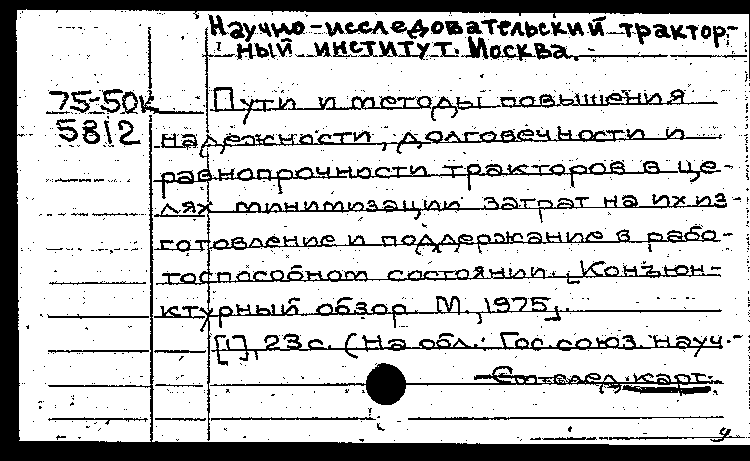 Научно-исследовательский трактор-
ный институт. Москва.
75-50к Пути и методы повышения
5812 надежности, долговечности и
равнопрочности тракторов в це-
лях минимизации затрат на их из-
готовление и поддержание в рабо-
тоспособном состоянии. [Конъюн-
ктурный обзор. М., 1975].
[1], 23с. (На обл.: Гос.союз.науч.-
См.след.карт.